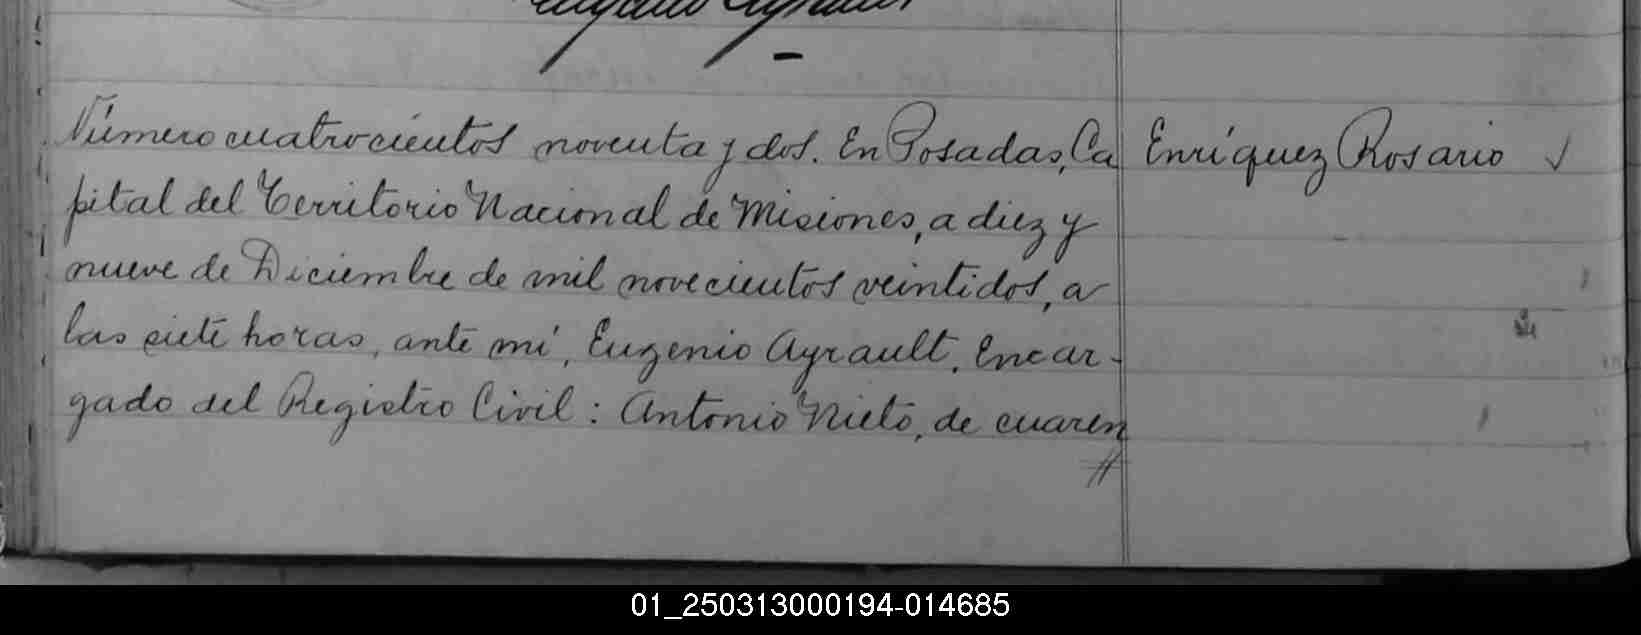 Eugenio Ayrault
Número cuatrocientos noventa y dos. En Posadas, Ca
pital del Territorio Nacional de Misiones, a diez y
nueve de Diciembre de mil novecientos veintidos, a
las siete horas, ante mí, Eugenio Ayrault, Encar-
gado del Registro Civil: Antonio Nieto, de cuaren
Enríquez Rosario
01_250313000194-014685